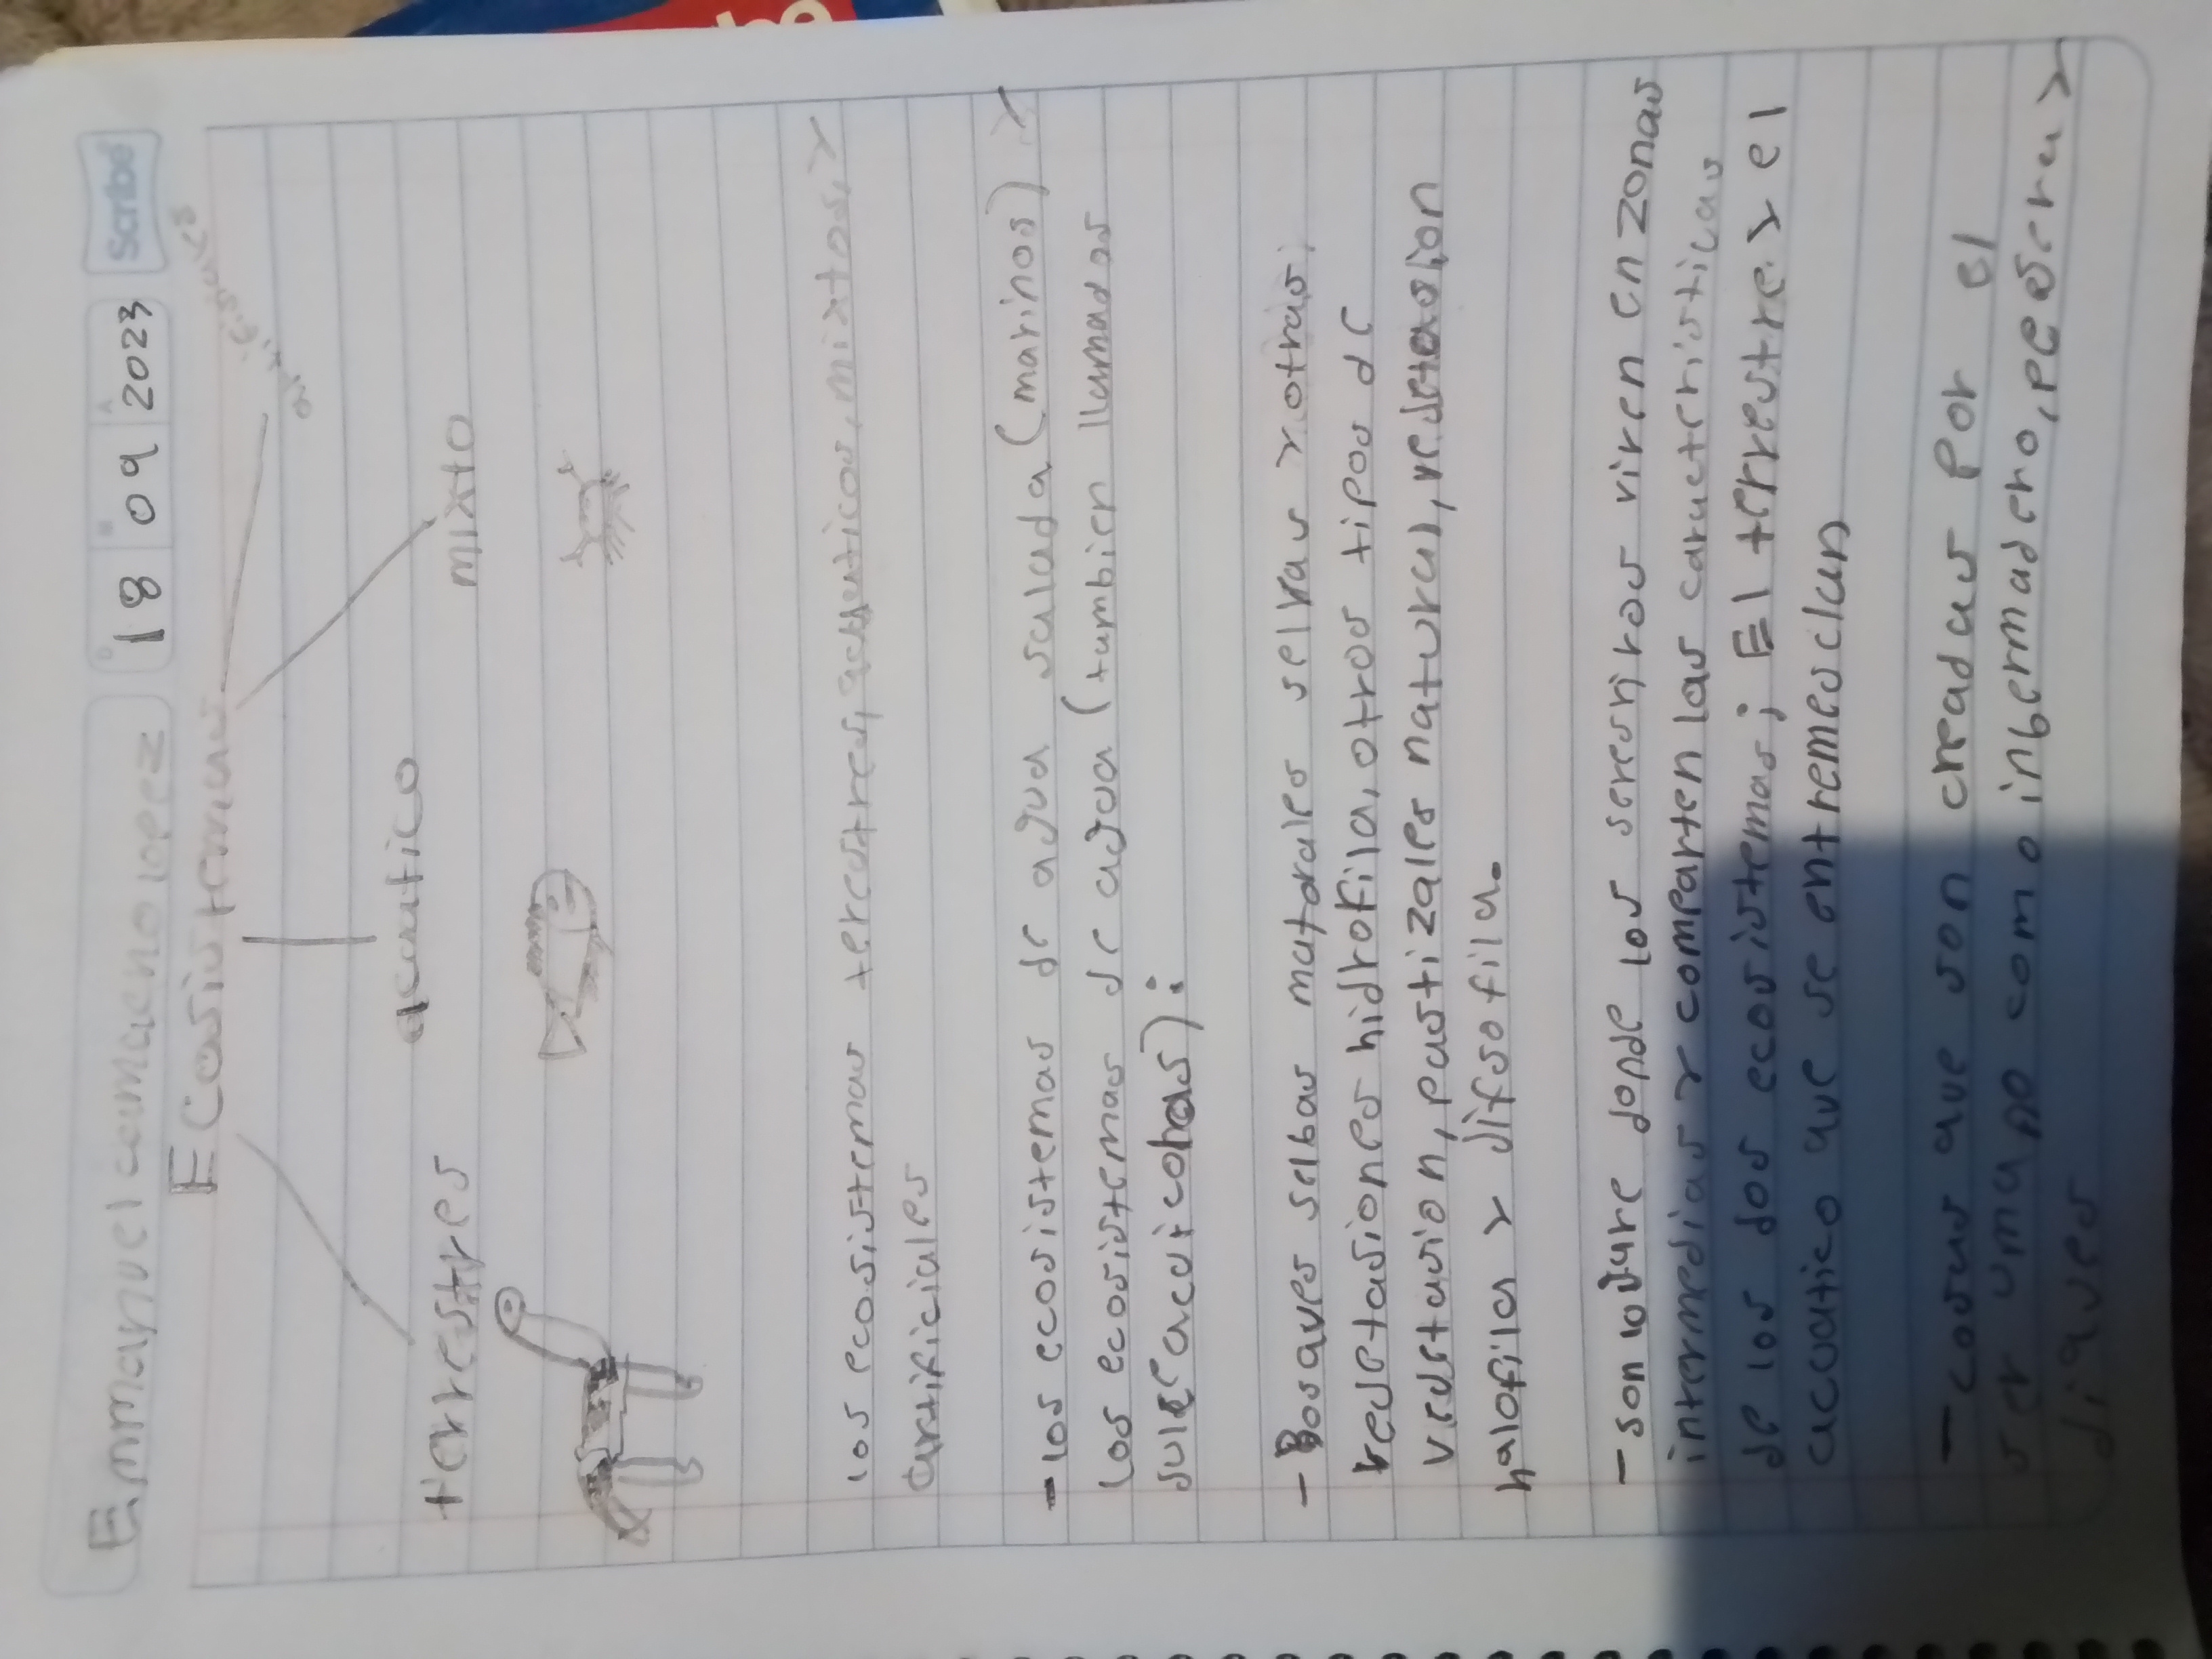 Emmanuel camacho lopez
18 09 2023
Scribe
Ecosistemas
terrestres
acuatico
mixto
los ecosistemas terestres, acuaticos, mixtos, y
artificiales
- los ecosistemas de agua salada (marinos) y
los ecosistemas de agua (tambien llamados
- Bosques selbas matorales selvas y otras,
vegetasiones hidrofila, otros tipos de
vegetasion, pastizales natural, vegetasion
halofila y
donde los viven en zonas
intermedias y comparten las caracteristicas
de los dos ecosistemas; El terrestre y el
acuatico que se entremesclan
- cosas que son creadas por el
ser umano como inbernadero, pesera y
diques